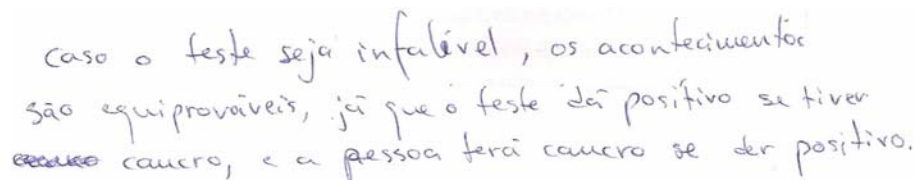 caso o teste seja infalível, os acontecimentos
são equiprováveis, já que o teste dá positivo se tiver
cancro, e a pessoa terá cancro se der positivo.